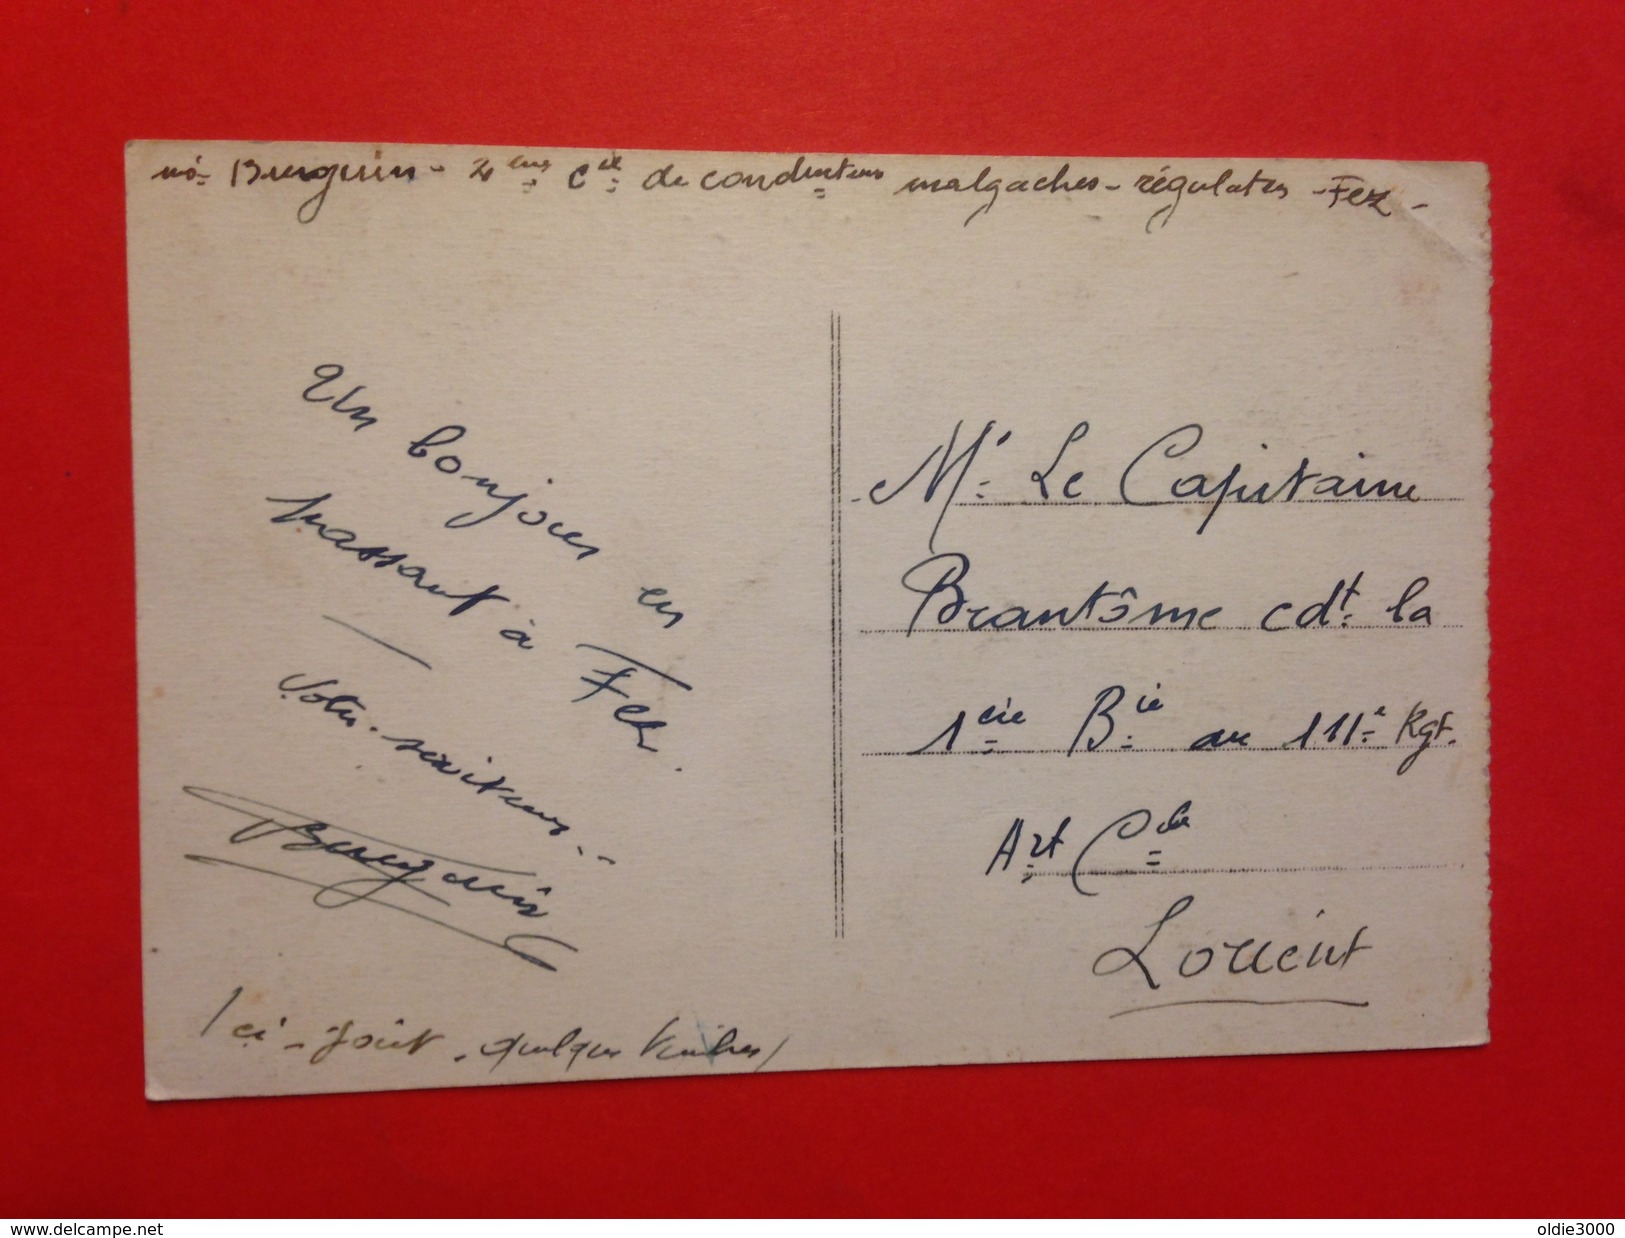 Burguin - 2ème Cie de conducteurs malgaches - régulatrs - Fez -
Un bonjour en
passant à Fez.
Votre serviteur..
Burguin
/ci-joint - quelques timbres/
Mr Le Capitaine
Brantôme cdt la
1ère Bie au 111e Rgt.
Art Cle
Lorient
www.delcampe.net
oldie3000